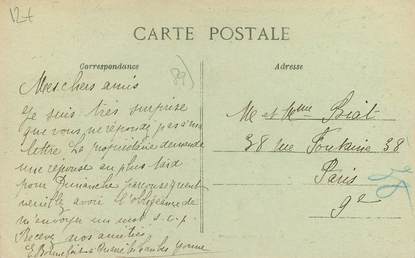 12+
CARTE POSTALE
Correspondance
Adresse
Mes chers amis
Je suis très surprise
que vous ne repondé pas à ma
lettre Le propriétaire demande
une réponse au plus tard
pour Dimanche par consequent
veuillé avoir l'obligeance de
m'envoyer un mot s.v.p.
Recevez nos amitiés
Yvonne
M et Mme Biat
38 rue Fontaine 38
Paris
9e